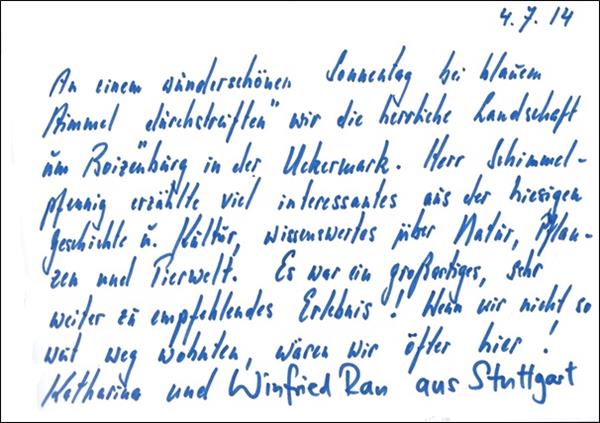 4.7.14
An einem wunderschönen Sonnentag bei blauem
Himmel „durchstreiften" wir die herrliche Landschaft
um Boizenburg in der Uckermark. Herr Schimmel-
pfennig erzählte viel interessantes aus der hiesigen
Geschichte u. Kultur, wissenswertes über Natur, Pflan-
zen und Tierwelt. Es war ein großartiges, sehr
weiter zu empfehlendes Erlebnis! Wenn wir nicht so
weit weg wohnten, wären wir öfter hier!
Katharina und Winfried Rau aus Stuttgart